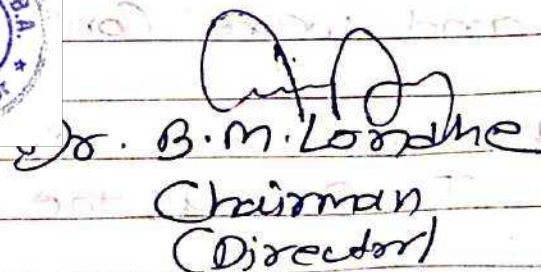 B.A. *
Dr. B.M. Londhe
Chairman
(Director)